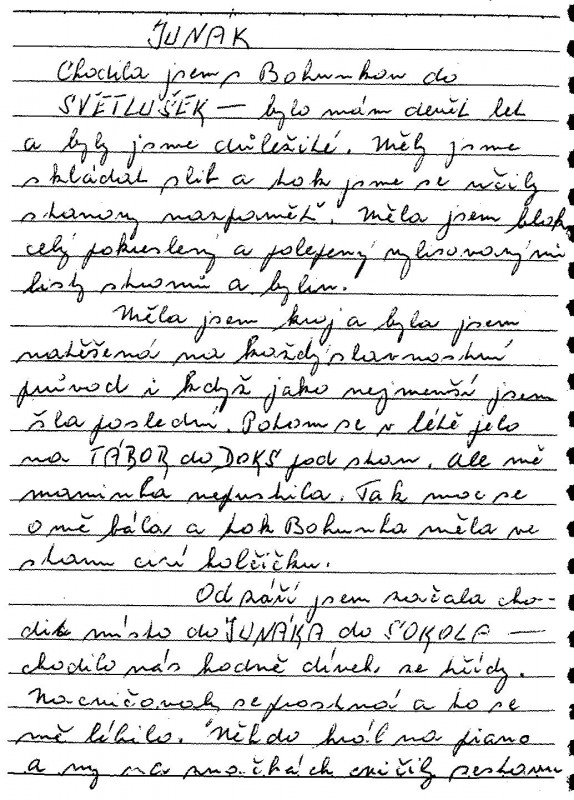 JUNAK
Chodila jsem s Bohunkou do
SVĚTLUŠEK — bylo nám devět let
a byly jsme důležité. Měly jsme
skládat slib a tak jsme se učily
stanovy nazpaměť. Měla jsem blok
celý pokreslený a polepený vylisovanými
listy stromů a bylin.
Měla jsem kroj a byla jsem
natěšená na každý slavnostní
průvod i když jako nejmenší jsem
šla poslední. Potom se v létě jelo
na TÁBOR do DOKS pod stan. Ale mě
maminka nepustila. Tak moc se
o mě bála a tak Bohunka měla ve
stanu cizí holčičku.
Od září jsem začala cho-
dit místo do JUNÁKA do SOKOLA —
chodilo nás hodně dívek ze třídy.
Nacvičovaly se prostná a to se
mě líbilo. Někdo hrál na piano
a my na značkách cvičily sestavu